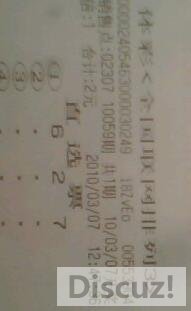 体彩<全国联网排列3
000024054630000030249 18ZvEo 0055
销售点:02307 10059期 共1期 10/03/07
倍:1 合计:2元 2010/03/07 12:4
直选票
① 6
② 2
③ 7
④
Discuz!